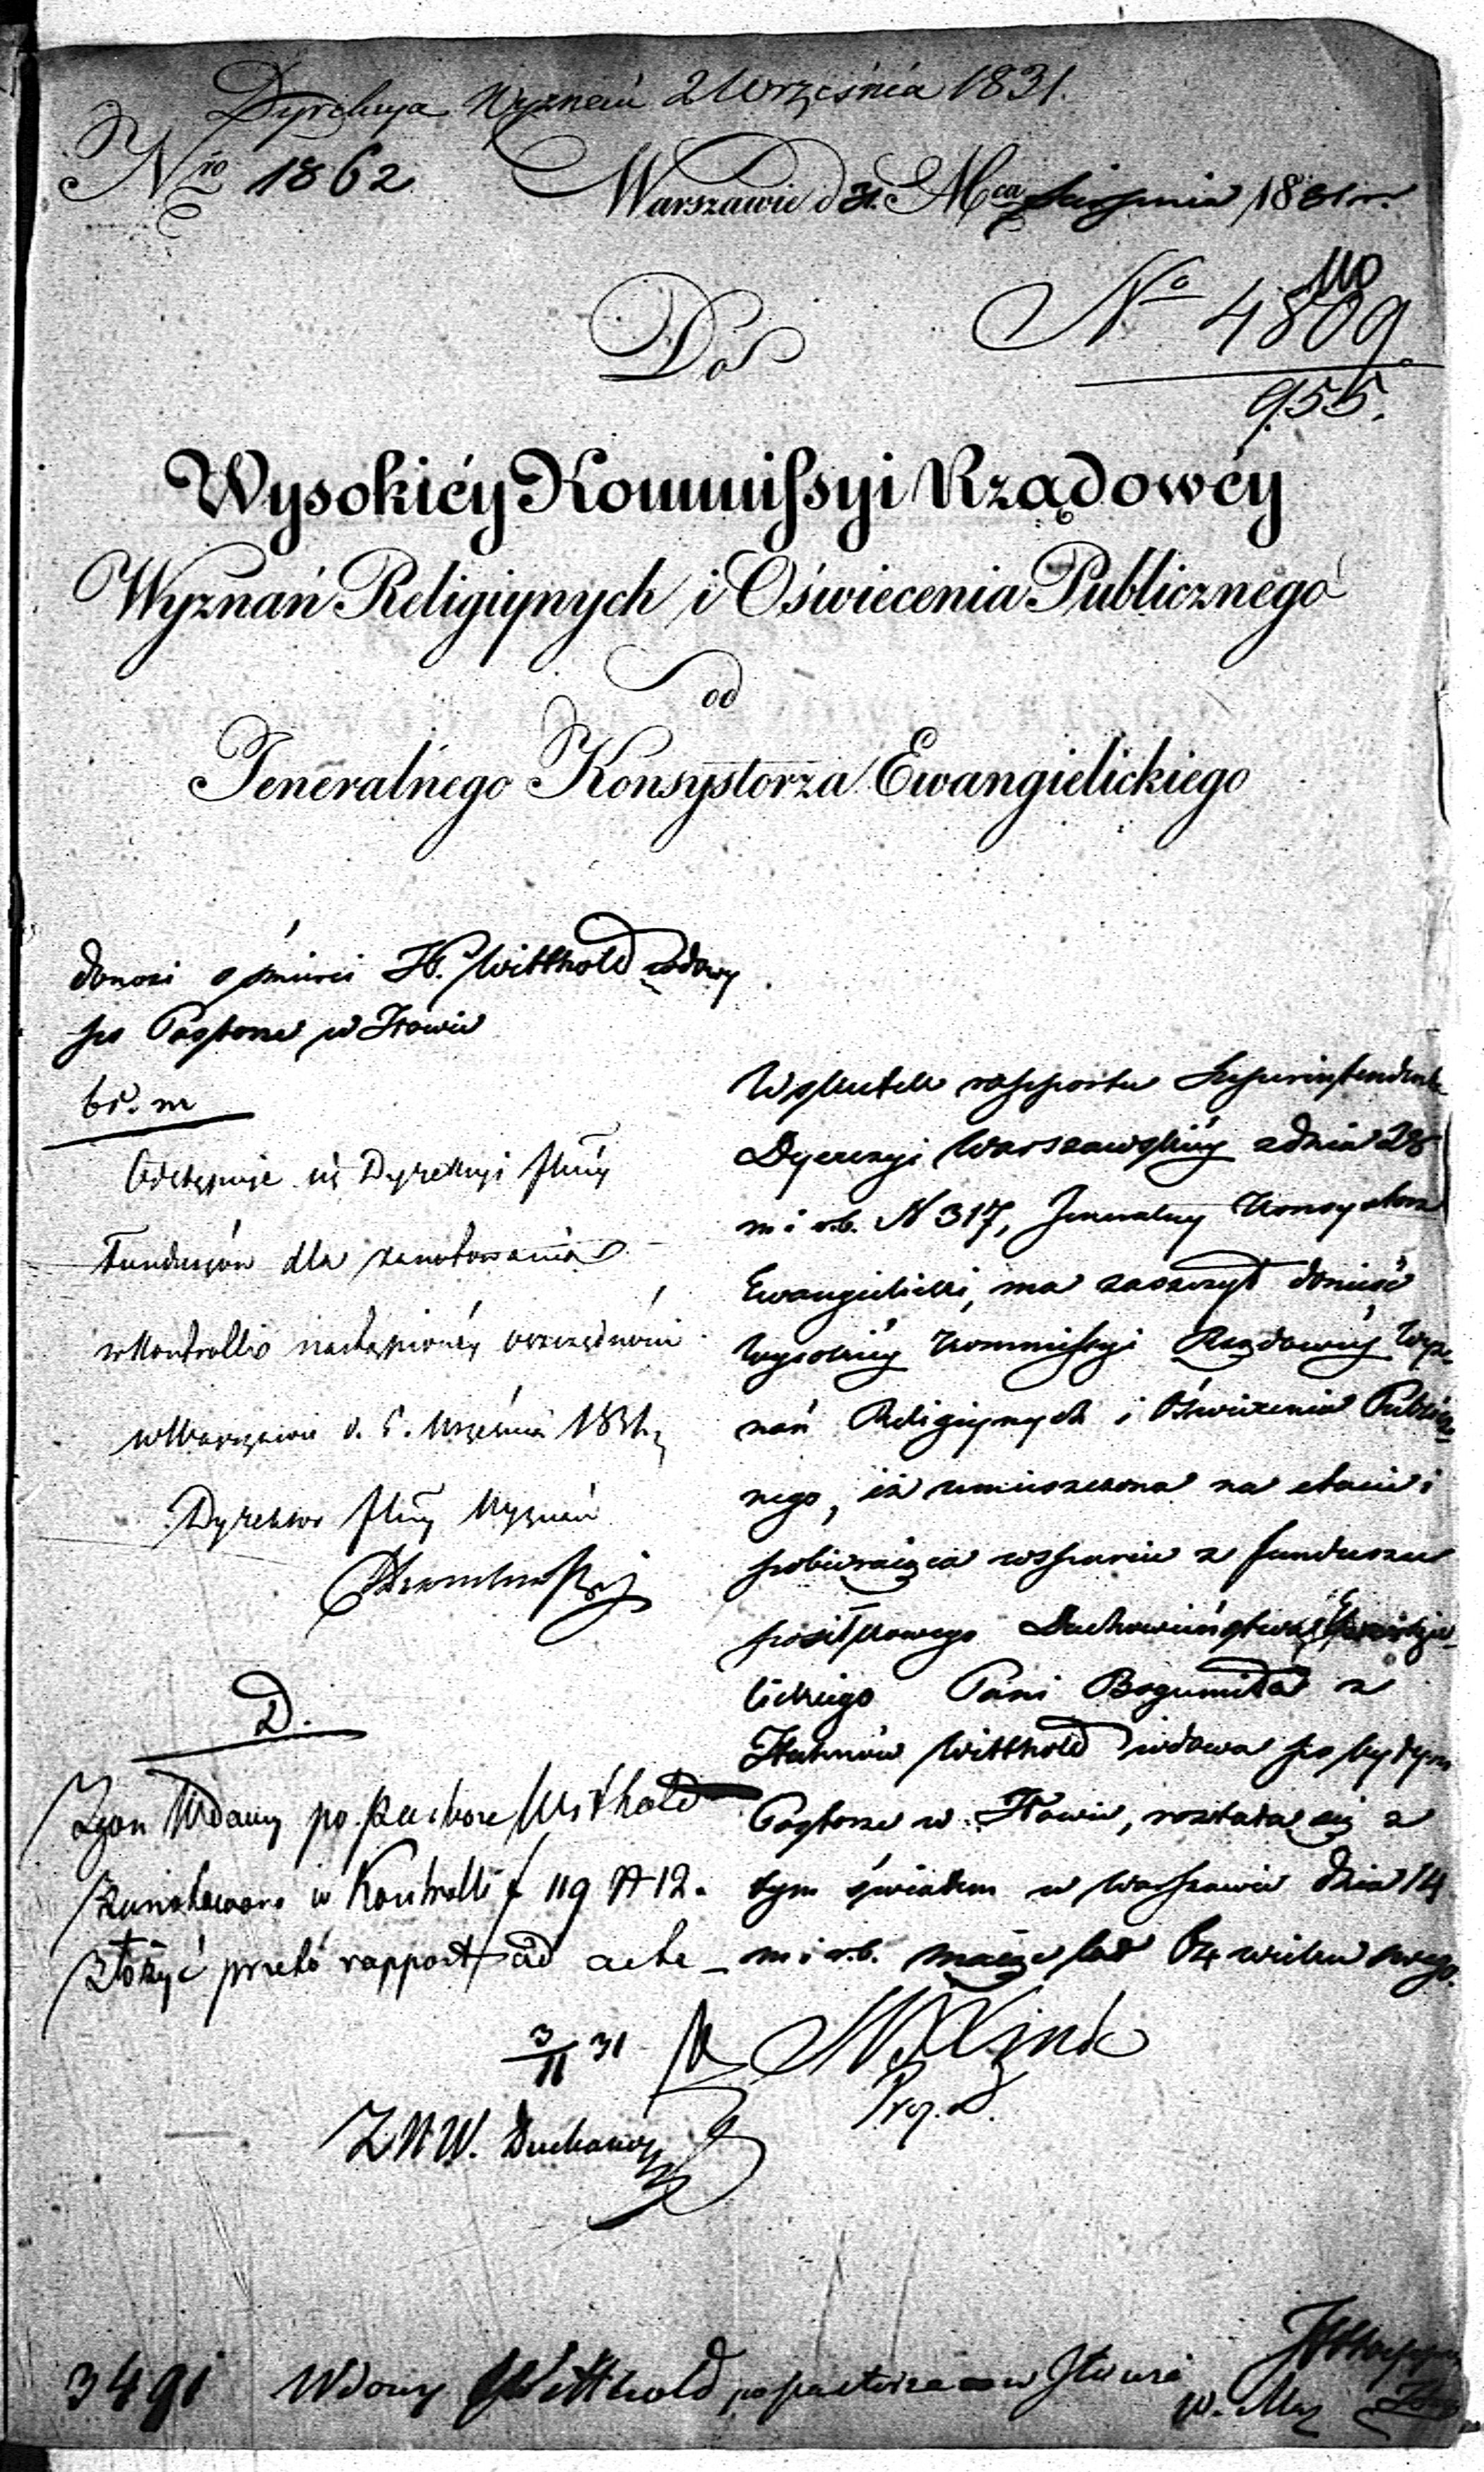 Dyrekcya Wyznań 2 Września 1831.
Nro 1862
Warszawie d 31. Mca Sierpnia 1831 r.
110
No 4809
955.
Do
Wysokiéy Kommissyi Rządowéy
Wyznań Religiynych i Oświecenia Publicznego
od
Jeneralnego Konsystorza Ewangielickiego
donosi o śmierci W. Witthold wdowy
po Pastorze w Iłowie
Odstępuje się Dyrekcyi
Funduszów dla zanotowania
w Kontrolli nastąpionéy oszczędności
w Warszawie d. 5. Września 1831.
Dyrektor Wyznań
D.
Zgon Wdowy po Pastorze Witthold
zanotowano w Kontrolli f 119 N 12.
złożyć przeto rapport ad acta
3/11 31
Z N W. Duchowny
W skutek rapportu Superintendenta
Dyecezyi Warszawskiéy z dnia 28
m i r. b. N 317, Jeneralny Konsystorz
Ewangielicki, ma zaszczyt donieść
Wysokiéy Kommissyi Rządowéy Wyz-
nań Religiynych i Oświecenia Publicz-
nego, iż umieszczona na etacie i
pobieraiąca wsparcie z funduszu
posiłkowego Duchowieństwa Ewangie-
lickiego Pani Bogumiła z
Hahnów Witthold wdowa po byłym
Pastorze w Iłowie, rozstała się z
tym światem w Warszawie dnia 14
m i r. b. maiąc lat wieku swego.
Prez. D.
3491 Wdowy Witthold po pastorze w Iłowie
w. Maz